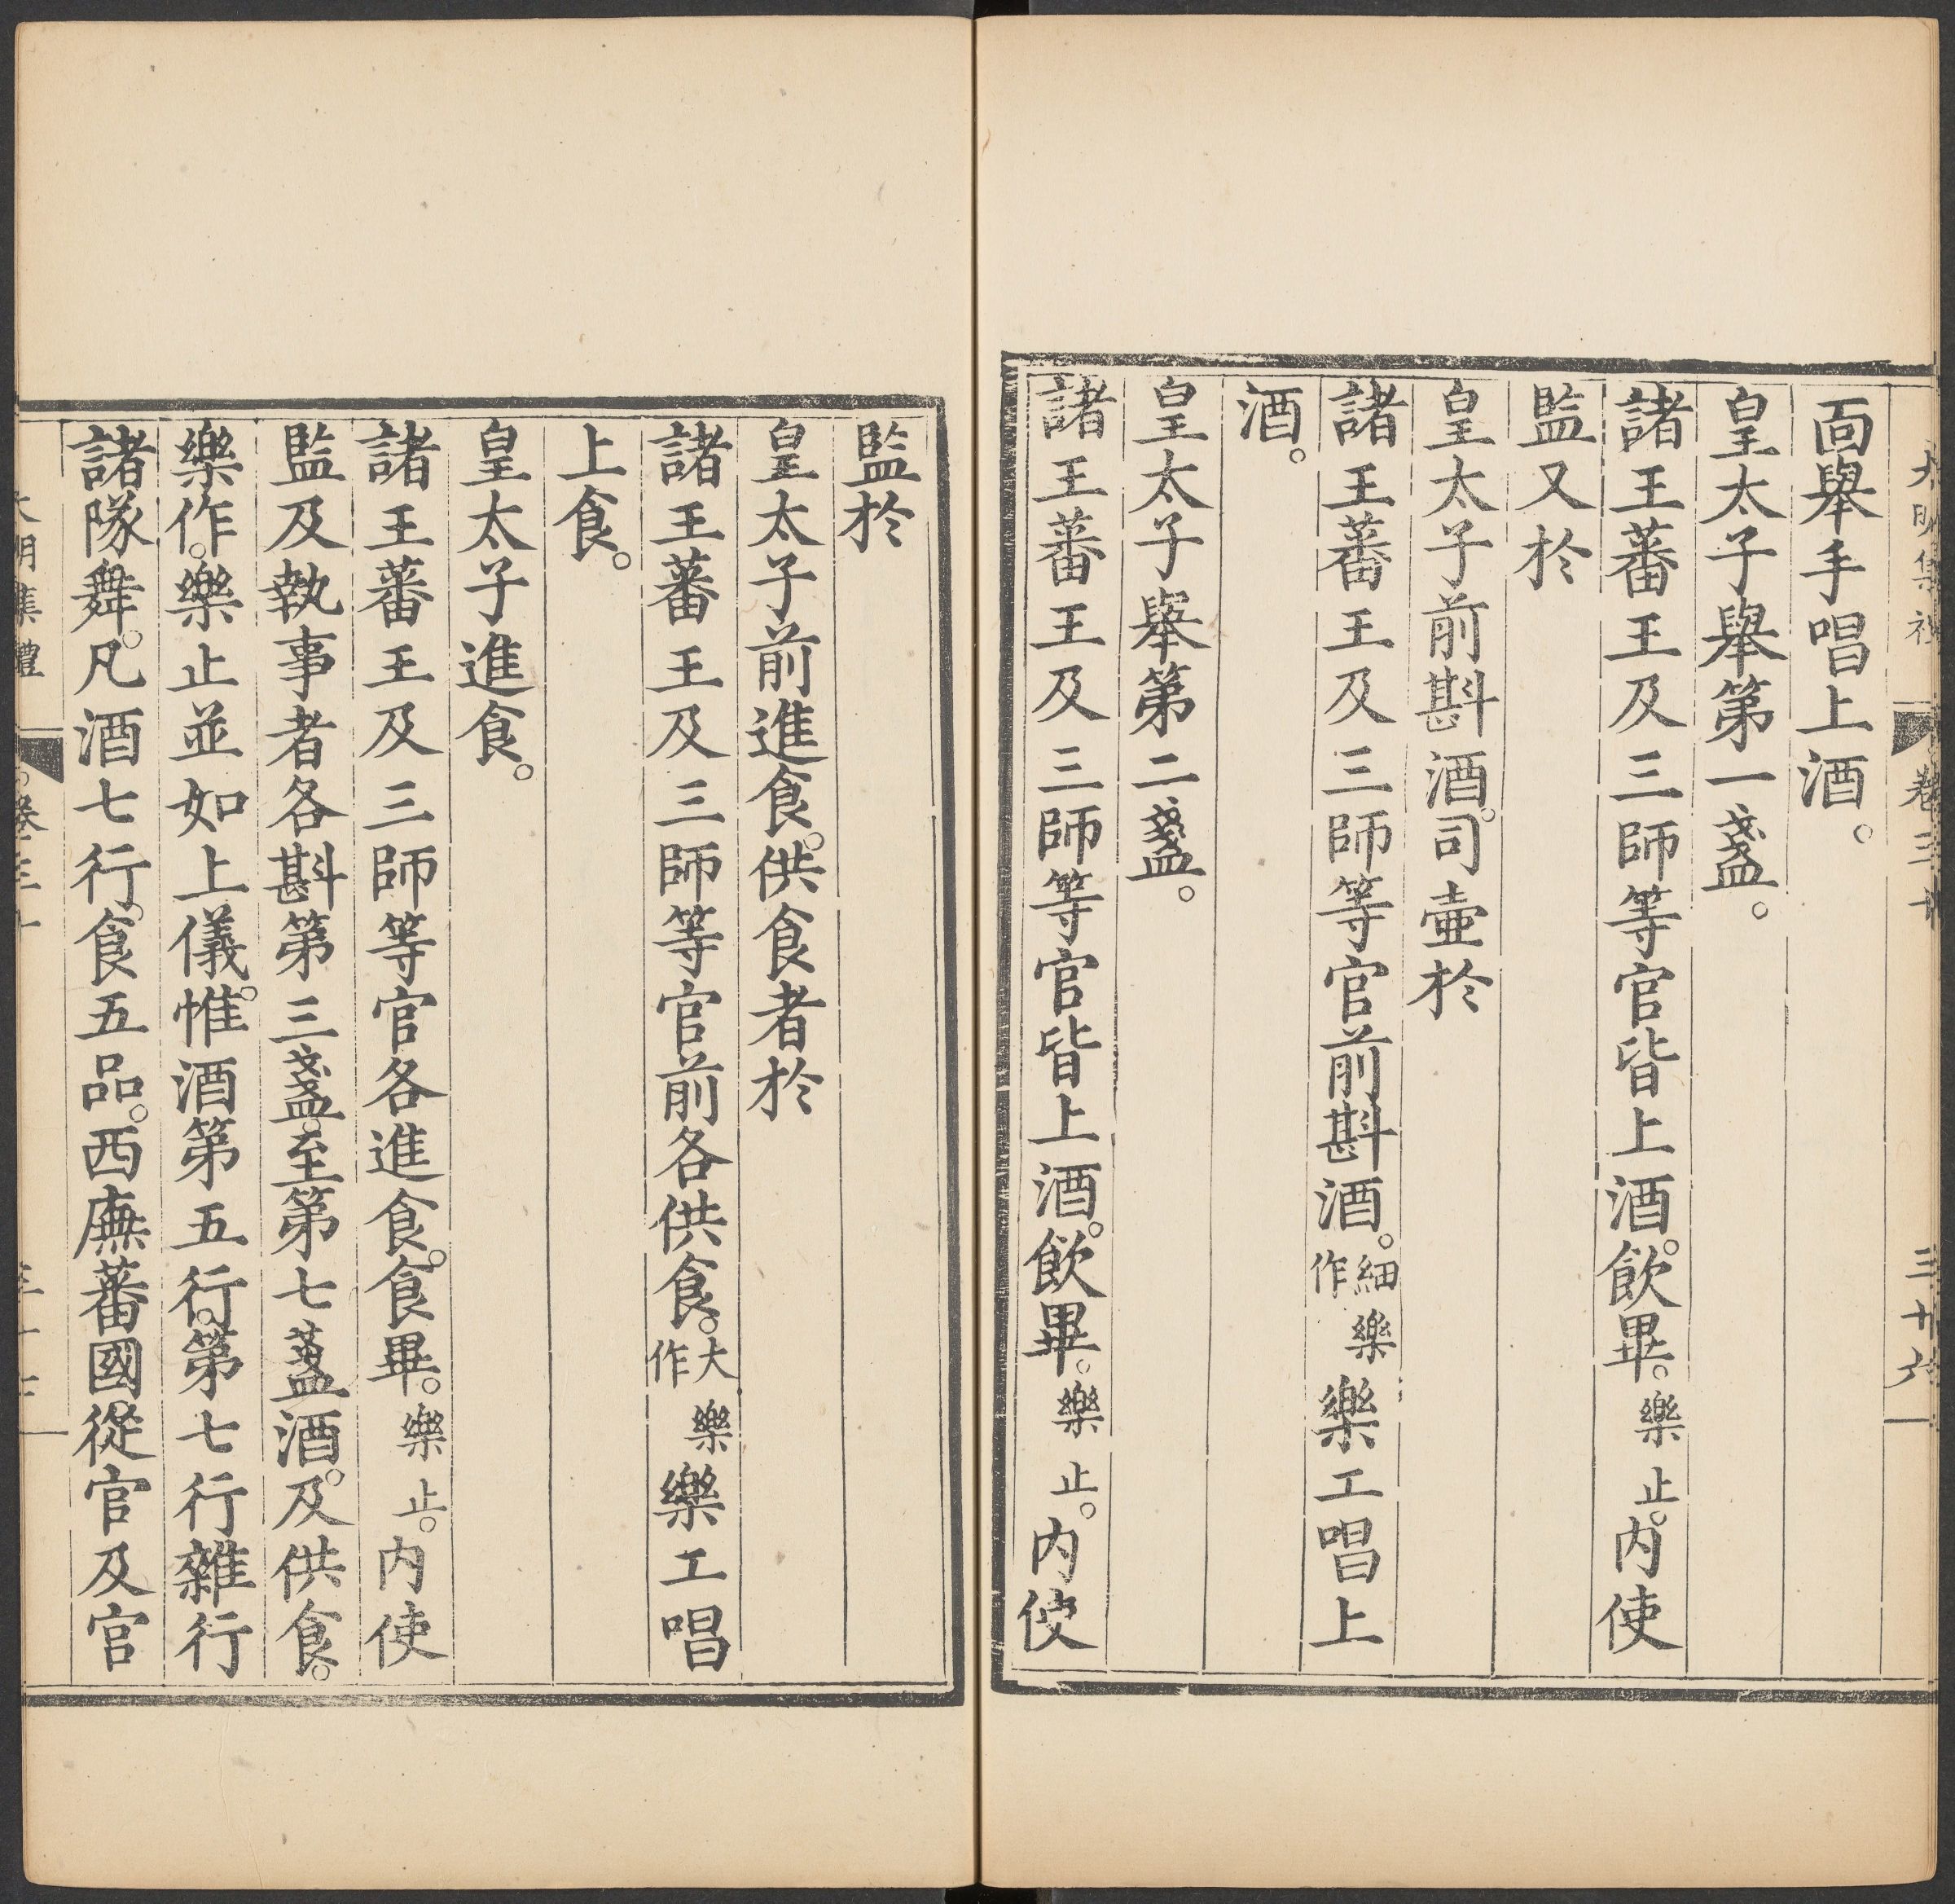 面舉手唱上酒。
皇太子舉第一盞。
諸王蕃王及三師等官皆上酒。飲畢。樂止。內使
監又於
皇太子前斟酒。司壺於
諸王蕃王及三師等官前斟酒。細樂作樂工唱上
酒。
皇太子舉第二盞。
諸王蕃王及三師等官皆上酒。飲畢。樂止。內使
監於
皇太子前進食。供食者於
諸王蕃王及三師等官前各供食。大樂作樂工唱
上食。
皇太子進食。
諸王蕃王及三師等官各進食。食畢。樂止。內使
監及執事者各斟第三盞。至第七盞酒。及供食。
樂作。樂止並如上儀。惟酒第五行。第七行雜行
諸隊舞。凡酒七行。食五品。西廡蕃國從官及官